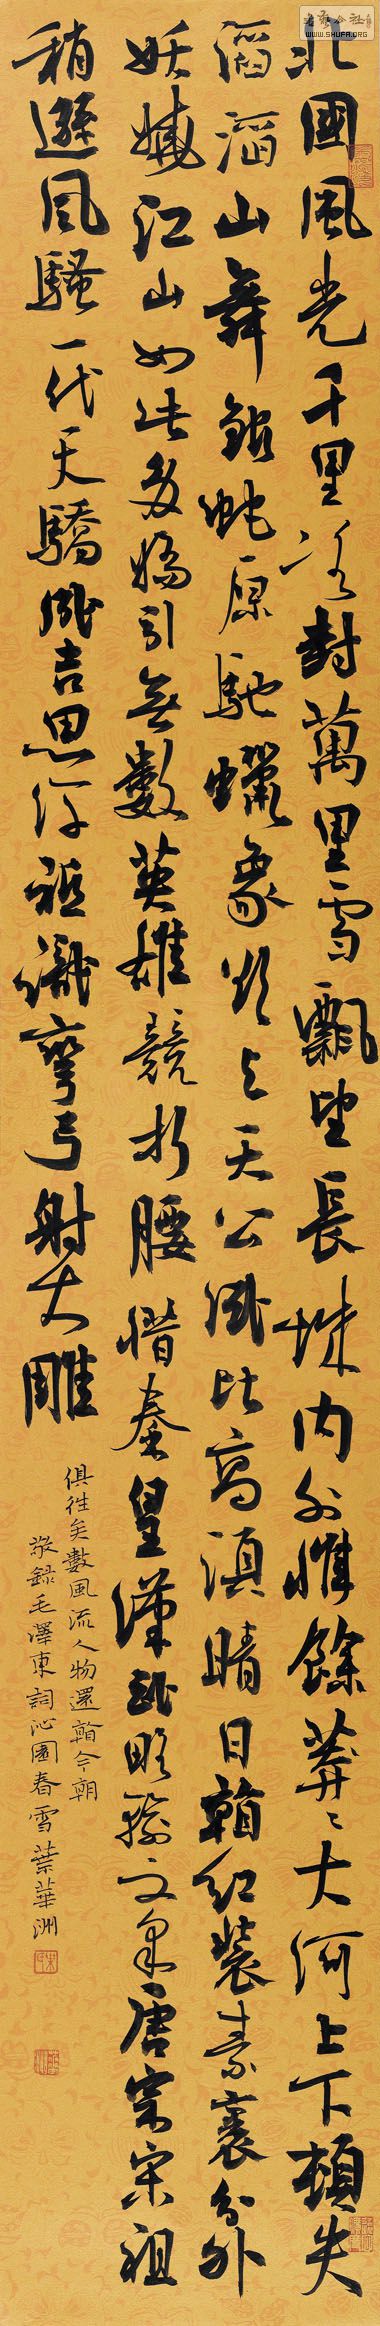 北國風光千里冰封萬里雪飄望長城內外惟餘莽〻大河上下頓失
滔滔山舞銀蛇原馳蠟象欲与天公試比高須晴日看紅裝素裹分外
妖嬈江山如此多嬌引無數英雄競折腰惜秦皇漢武略輸文采唐宗宋祖
稍遜風騷一代天驕成吉思汗祗識彎弓射大雕
俱往矣數風流人物還看今朝
敬錄毛澤東詞沁園春雪葉華洲
WWW.SHUFA.ORG